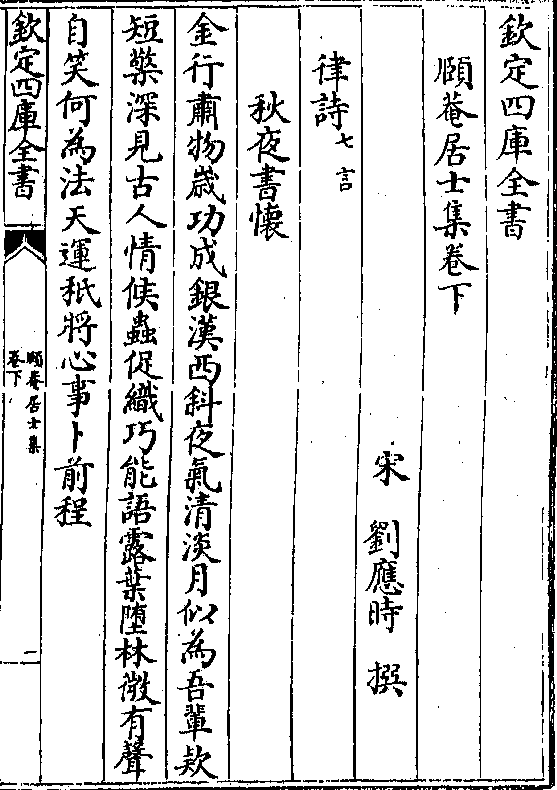 欽定四庫全書
頤菴居士集卷下
宋 劉應時 撰
律詩七言
秋夜書懷
金行肅物歲功成銀漢西斜夜氣清淡月似為吾輩欵
短檠深見古人情候蟲促織巧能語露葉墮林微有聲
自笑何為法天運秖將心事卜前程
欽定四庫全書
頤菴居士集
卷下
一